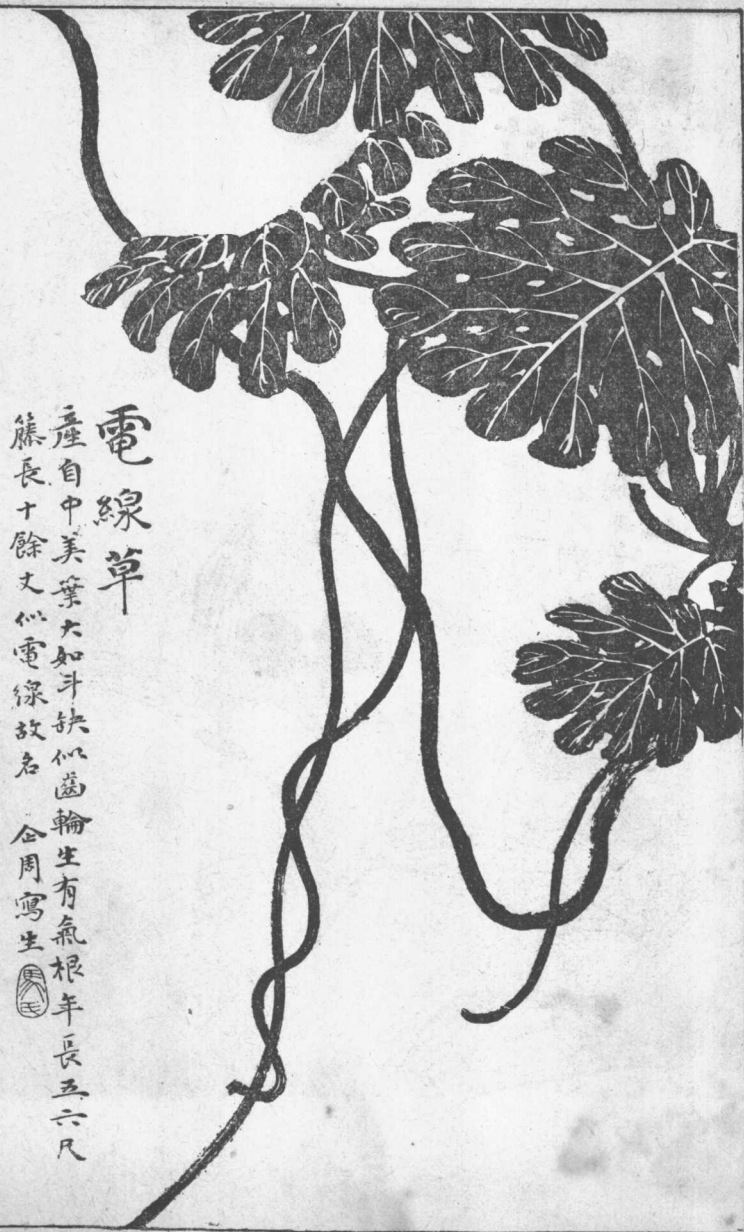 電線草
產自中美葉大如斗缺似齒輪生有氣根年長五六尺
籐長十餘丈似電線故名 企周寫生
馬氏